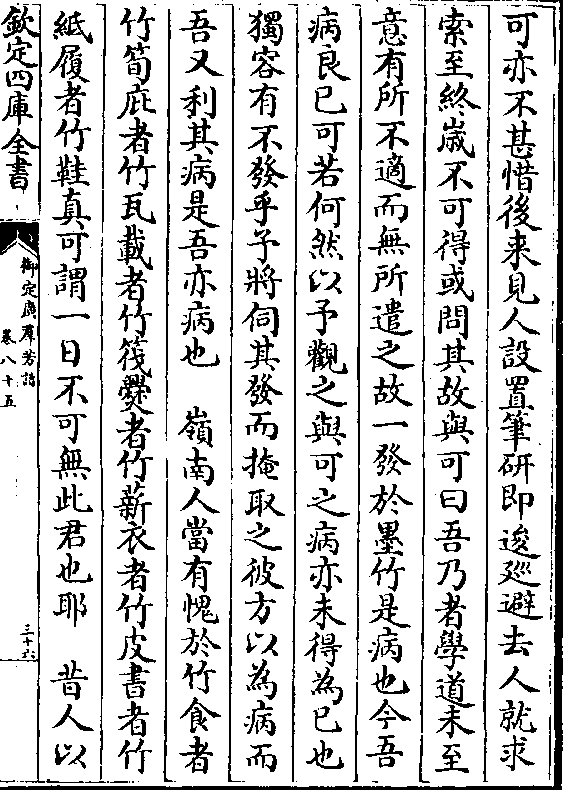 可亦不甚惜後来見人設置筆研即逡廵避去人就求
索至終歳不可得或問其故與可曰吾乃者學道未至
意有所不適而無所遣之故一發於墨竹是病也今吾
病良已可若何然以予觀之與可之病亦未得為已也
獨容有不發乎予將伺其發而掩取之彼方以為病而
吾又利其病是吾亦病也　嶺南人當有愧於竹食者
竹筍庇者竹瓦載者竹筏爨者竹薪衣者竹皮書者竹
紙履者竹鞋真可謂一日不可無此君也耶　昔人以
欽定四庫全書
御定廣羣芳譜
卷八十五
三十六